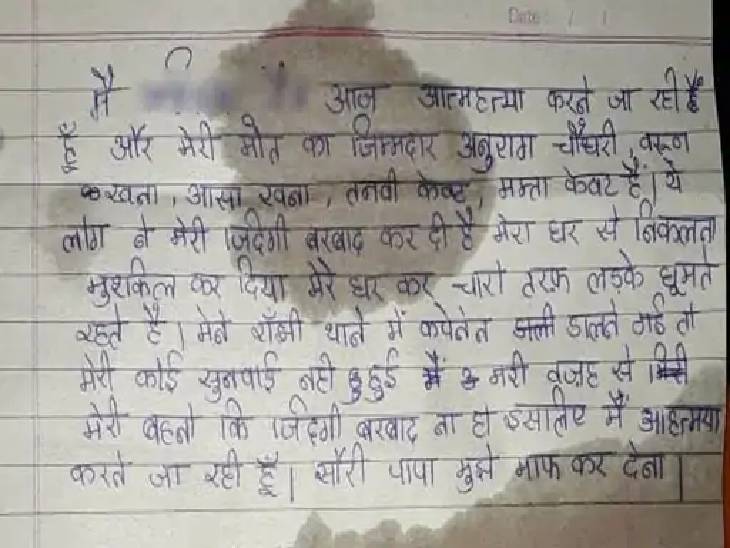 Date / /
मै आज आत्महत्या करने जा रही हूँ
हूँ और मेरी मौत का जिम्मदार अनुराग चौधरी, वरुण
खन्ना, आसा खन्ना, तनवी केवट, ममता केवट हैं। ये
लोग ने मेरी जिंदगी बरबाद कर दी है मेरा घर से निकलना
मुशकिल कर दिया मेरे घर कर चारो तरफ लडके घूमते
रहते है। मेने राँझी थाने में कंपेलेन डालने गई तो
मेरी कोई सुनवाई नही हुई मैं मरी वजह से
मेरी बहनो कि जिंदगी बरबाद ना हो इसलिए मैं आहत्मया
करने जा रही हूँ। सौरी पापा मुझे माफ कर देना।